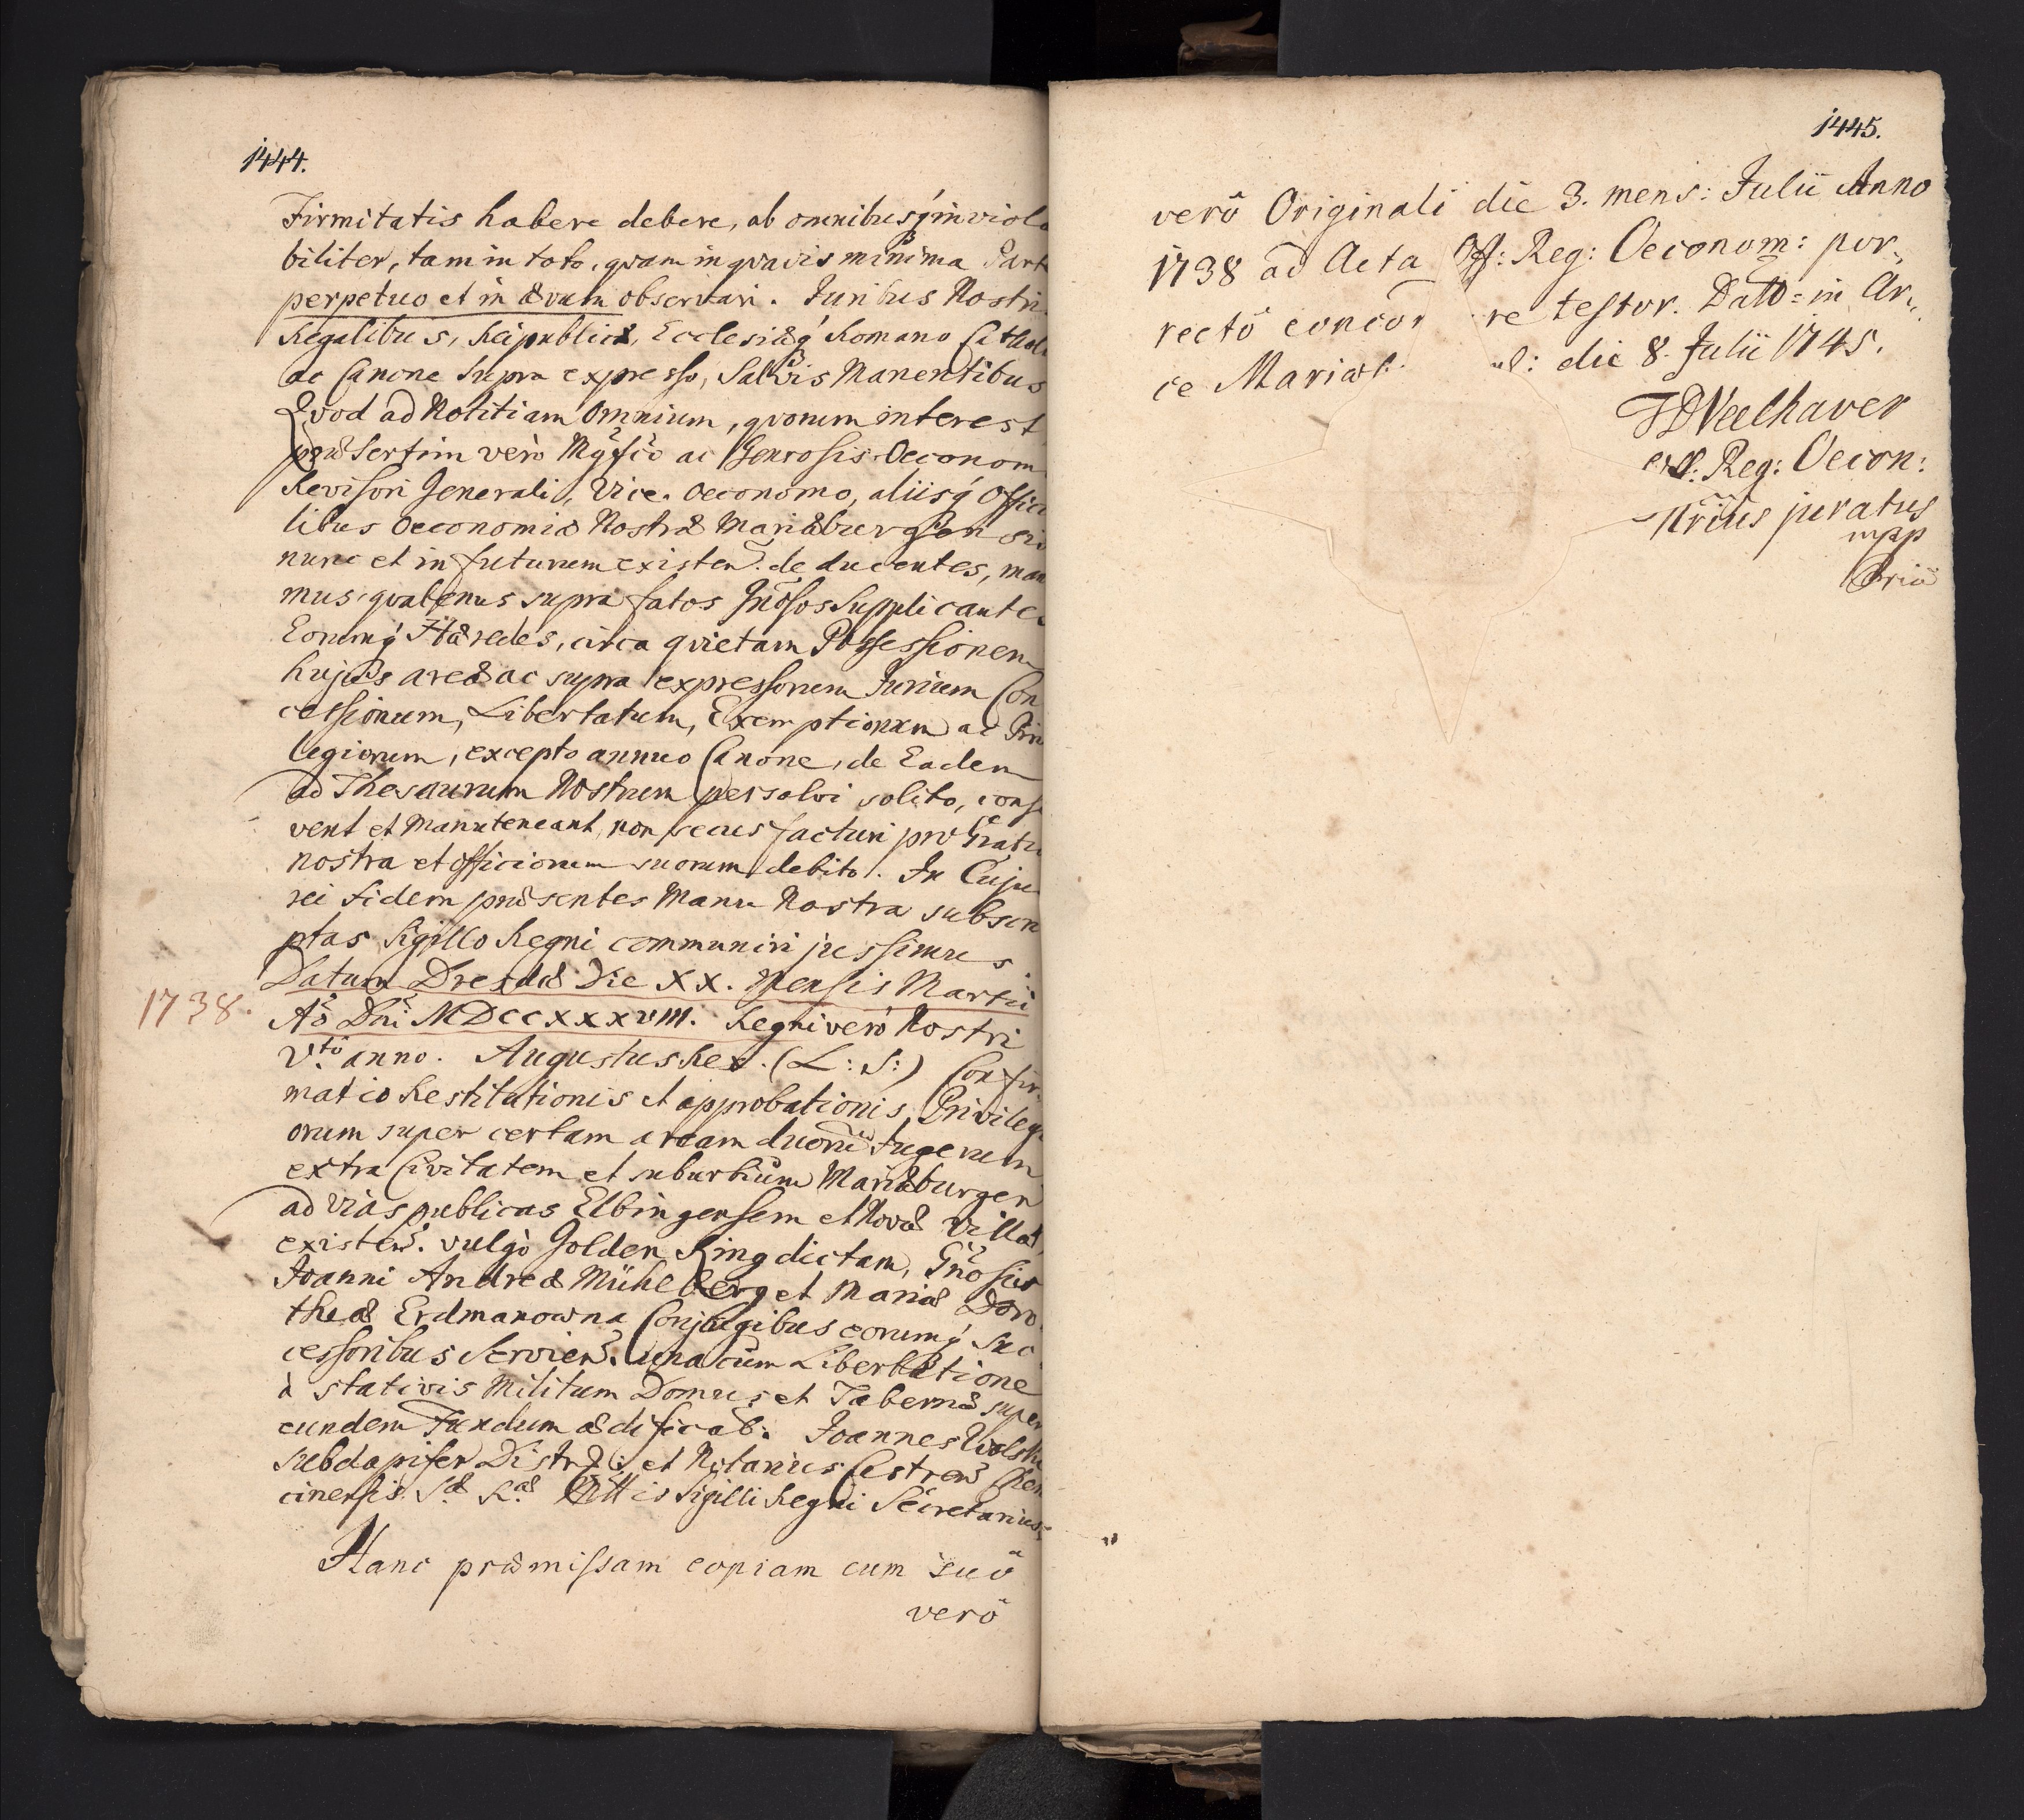 1444.
Firmitatis habere debere, ab omnibusq́ inviola
biliter, tam in toto, qvam in qvavis minima Part
perpetuo et in ævum observari. Juribus Nostri
Regalibus, Reipublicæ, Ecclesiæq́ Romano Cathol
ac Canone supra expresso, Salvis Manentibus
Qvod ad Notitiam Omnium, qvorum interest
præsertim verò Mgfcò ac Generosis Oeconom
Revisori Generali, Vice-Oeconomo, aliisq́ Offici
libus Oeconomiæ Nostræ Mariæburgen
nunc et in futurum existen. deducentes, man
mus qvatenus supra fatos Gnosos Supplicante
Eorumq́ Hæredes, circa qvietam Possessionem
hujus areæ ac supra expressorum Jurium Con
cessionum, Libertatum, Exemptionum ac Privi
legiorum, excepto annuo Canone, de Eadem
ad Thesaurum Nostrum persolvi solito, conse
vent et Manuteneant, non secus facturi pro Gratia
nostra et officiorum suorum debito. In Cuju
rei Fidem præsentes Manu Nostra subscri
ptas Sigillo Regni communiri jussimus
Datum Dresdæ Die XX. Mensis Martii
1738.
Aõ Dni MDCCXXXVIII. Regni verò Nostri
V.tõ anno. Augustus Rex. (L: S:) Confir
matio Restitutionis et approbationis Privilegi
orum super certam aream duorũ Jugerum
extra Civitatem et suburbium Mariæburgen
ad vias publicas Elbingensem et Novæ Villæ
existen. vulgò Golden Ring dictam, Gnosis
Joanni Andreæ Mühlberg et Mariæ Doro
theæ Erdmanowna Conjugibus eorumq́ Suc
cessoribus Servien. una cum Libertatione
à stativis Militum Domus et Tabernæ super
eundem Fundum ædificat: Joannes Wolski
Subdapifer Distr: et Notarius Castren Chen
cinensis. S.æ R.æ Mttis Sigilli Regni Secretarius
Hanc præmissam copiam cum suõ
verõ
1445.
verõ Originali die 3. mens: Julii Anno
1738 ad Acta Off: Reg: Oeconom: por,,
rectõ concor re testor. Datt= in Ar,,
ce Mariæb: die 8. Julii 1745.
Reg: Oecon:
Nrius juratus
mpp